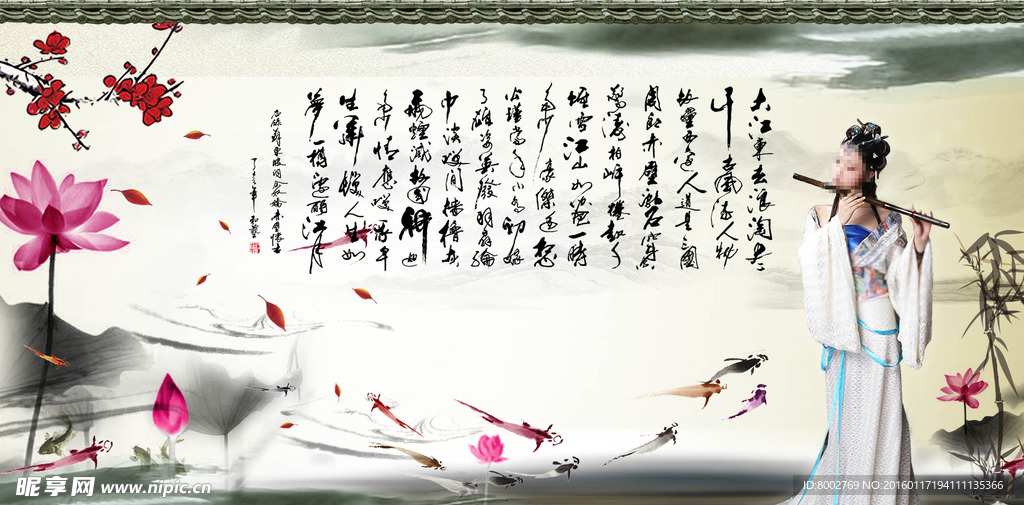 大江東去浪淘盡
千古風流人物
故壘西邊人道是三國
周郎赤壁亂石穿空
驚濤拍岸捲起千
堆雪江山如畫一時
多少豪傑遥想
公瑾當年小喬初嫁
了雄姿英發羽扇綸
巾談笑間檣櫓灰
飛煙滅故國神遊
多情應笑我早
生華髮人生如
夢一樽還酹江月
蘇東坡詞念奴嬌赤壁懷古
昵享网 www.nipic.cn
ID:8002769 NO:20160117194111135366